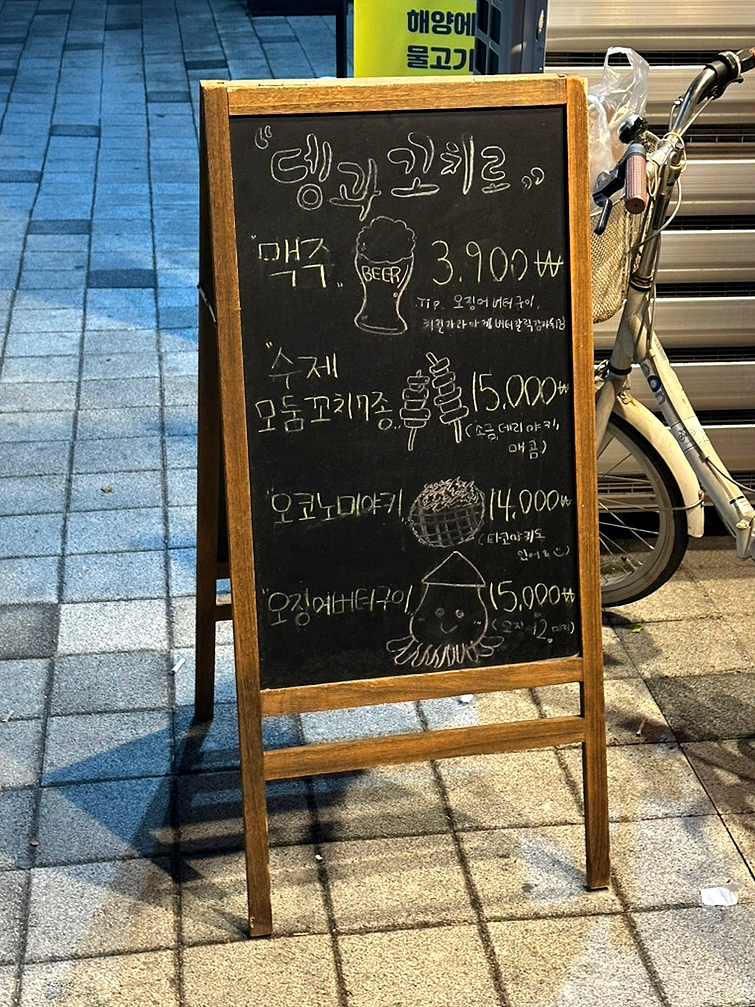 해양에
물고기
"뎅과 꼬치로"
"맥주"
BEER
3.900₩
Tip. 오징어 버터구이,
치킨가라아게 버터갈릭감자튀김
"수제
모둠꼬치7종"
15,000₩
(소금, 데리야끼,
매콤)
"오코노미야키"
14,000₩
(타코야끼도
있어요)
"오징어버터구이"
15,000₩
(오징어 2마리)